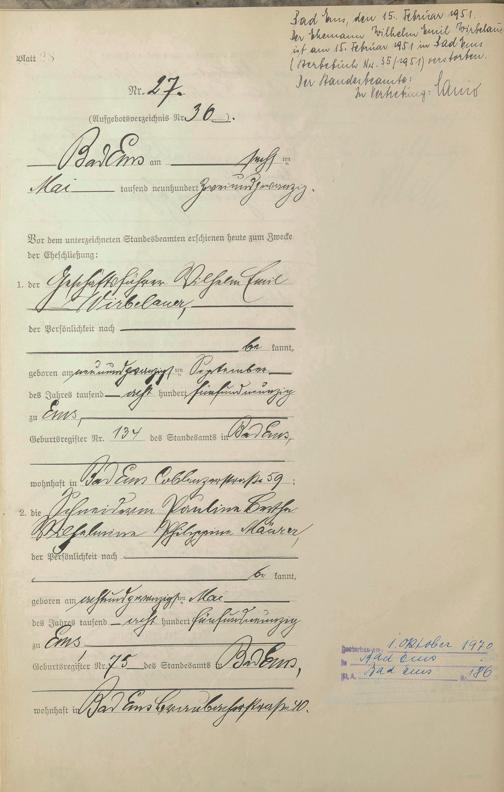 Bad Ems, den 15. Februar 1951.
Der Ehemann Wilhelm Emil Wirbelauer
ist am 15. Februar 1951 in Bad Ems
(Sterbebuch Nr. 35/1951) verstorben.
Der Standesbeamte:
In Vertretung:
Blatt
Nr. 27.
(Aufgebotsverzeichnis Nr. 30).
Bad Ems am sechs ten
Mai tausend neunhundert zweiundzwanzig.
Vor dem unterzeichneten Standesbeamten erschienen heute zum Zwecke
der Eheschließung:
1. der Geschäftsführer Wilhelm Emil
Wirbelauer,
der Persönlichkeit nach
be kannt,
geboren am neunundzwanzigsten September
des Jahres tausend acht hundert fünfundneunzig
zu Ems,
Geburtsregister Nr. 134 des Standesamts in Bad Ems,
wohnhaft in Bad Ems Coblenzerstraße 59;
2. die Schneiderin Pauline Berthe
Wilhelmine Philippine Mäurer,
der Persönlichkeit nach
be kannt,
geboren am achtundzwanzigsten Mai
des Jahres tausend acht hundert fünfundneunzig
zu Ems
Geburtsregister Nr. 75 des Standesamts in Bad Ems,
wohnhaft in Bad Ems Braubacherstraße 40.
Gestorben am 1. Oktober 1970
in Bad Ems
St. A. Bad Ems Nr. 186